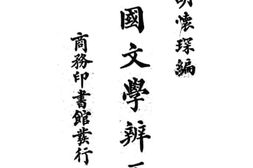 懷琛編
國文學辨
商務印書館發行